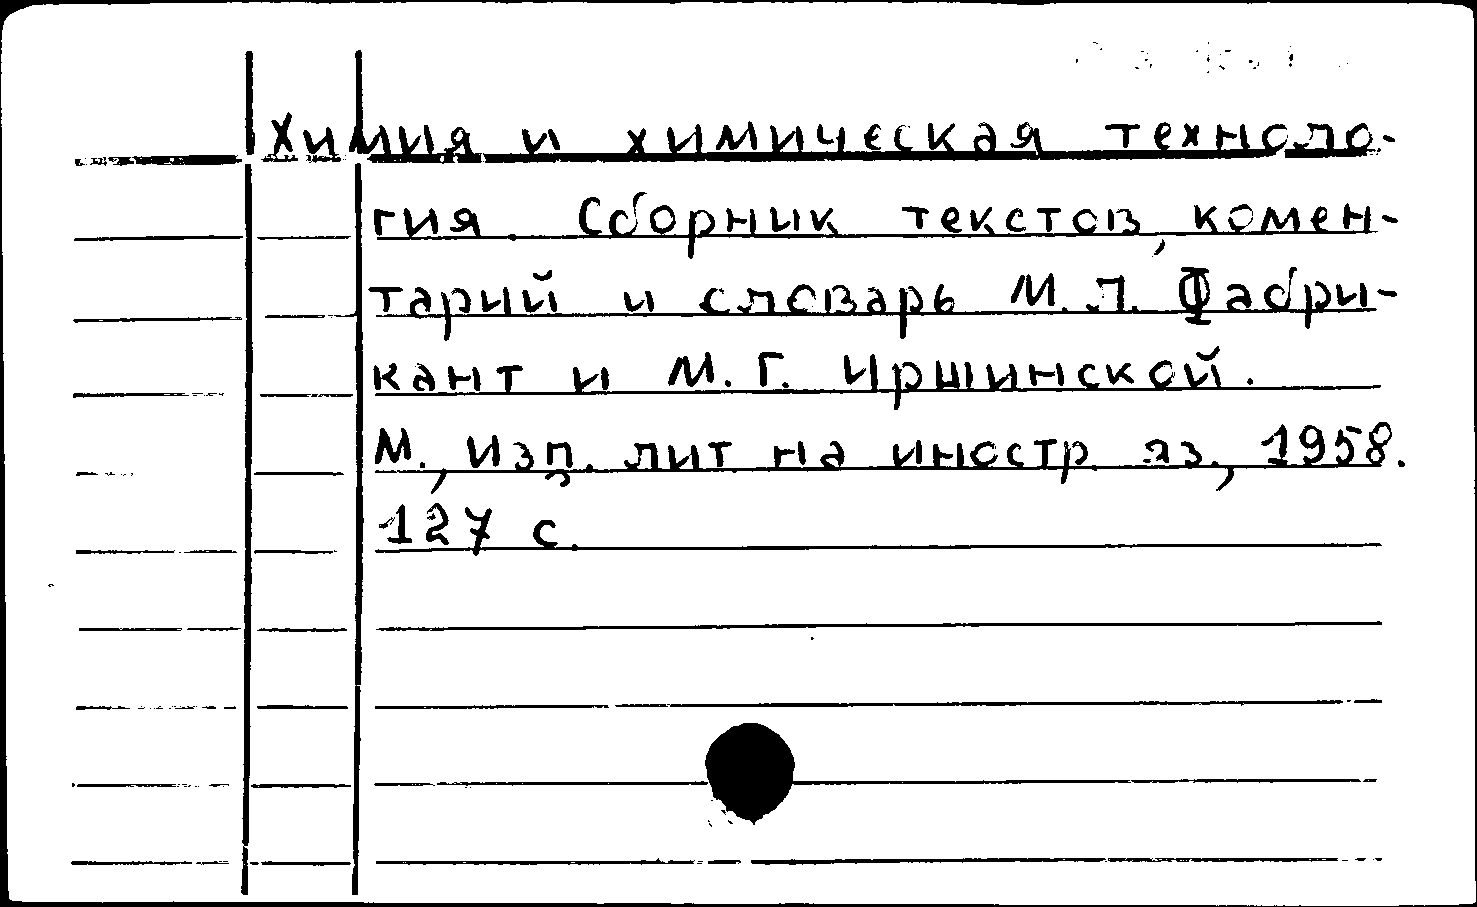 Химия и химическая техноло-
гия. Сборник текстов, комен-
тарий и словарь М.Л. Фабри-
кант и М.Г. Иршинской.
М., Изд. лит на иностр. яз., 1958.
127 с.